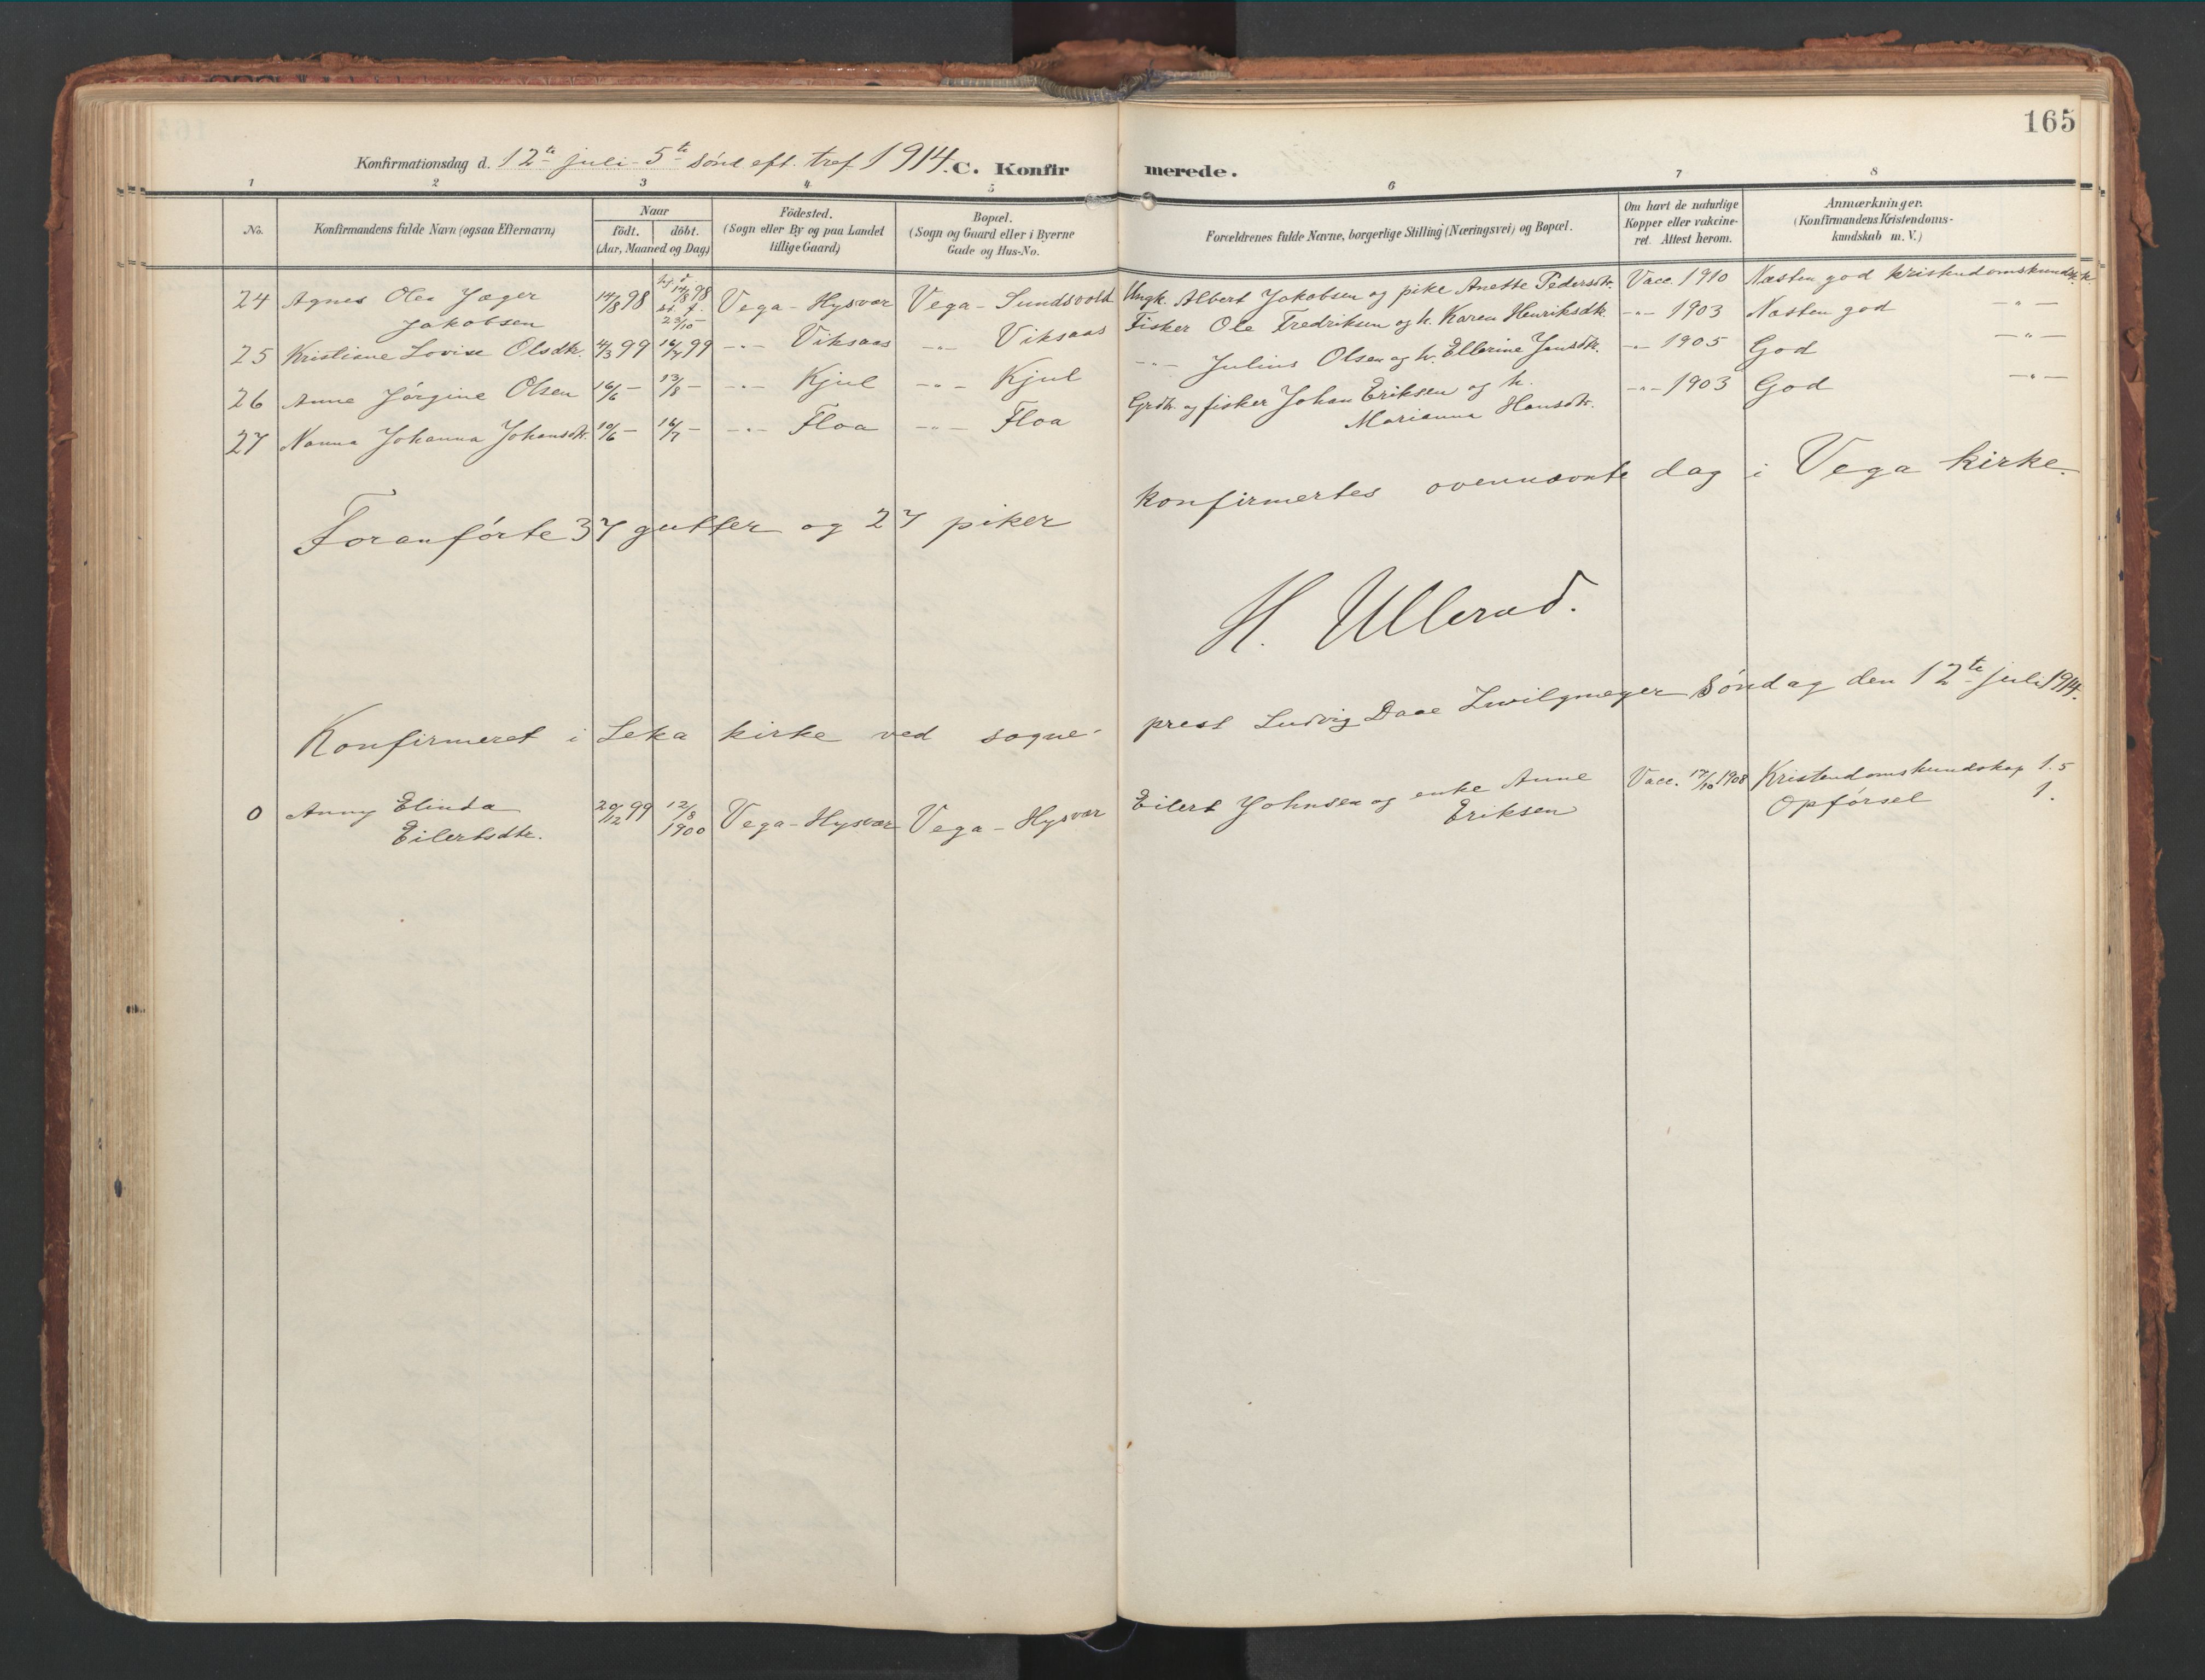 165
Konfirmationsdag d. 12te juli - 5te sönd eft. tref 1914. C. Konfirmerede.
1 2 3 4 5 6 7 8
No.
Konfirmandens fulde Navn (ogsaa Efternavn)
Naar
födt. döbt.
(Aar, Maaned og Dag)
Födested.
(Sogn eller By og paa Landet
tillige Gaard)
Bopæl.
(Sogn og Gaard eller i Byerne
Gade og Hus-No.
Forældrenes fulde Navne, borgerlige Stilling (Næringsvei) og Bopæl.
Om havt de naturlige
Kopper eller vakcine-
ret. Attest herom.
Anmærkninger.
(Konfirmandens Kristendoms-
kundskab m. V.)
24 Agnes Olea Jæger 14/8 98 hj. d. 14/8 98 Vega - Hysvær Vega - Sundsvold Ungk. Albert Jakobsen og pike Anette Pedersdtr. Vacc. 1910 Næsten god kristendomskundsk.
Jakobsen st. f. 23/10 -
25 Kristiane Lovise Olsdtr. 4/3 99 16/4 99 -"- Viksaas -"- Viksaas Fisker Ole Fredriksen og h. Karen Henriksdtr. -"- 1903 Næsten god -"-
26 Anne Jörgine Olsen 16/6 - 13/8 - -"- Kjul -"- Kjul -"- Julius Olsen og h. Ellerine Jansdtr. -"- 1905 God -"-
27 Nanna Johanna Johansdtr. 10/6 - 16/7 - -"- Floa -"- Floa Grdbr. og fisker Johan Eriksen og h. -"- 1903 God -"-
Marianna Hansdtr.
Foranförte 37 gutter og 27 piker konfirmertes ovennævnte dag i Vega kirke.
H. Ullerud.
Konfirmeret i Leka kirke ved sogne- prest Ludvig Daae Zwilgmeyer Söndag den 12te juli 1914.
0 Anny Elinda 20/12 99 12/8 Vega - Hysvær Vega - Hysvær Eilert Johnsen og enke Anne Vacc. 17/10 1908 Kristendomskundskap 1.5
Eilertsdtr. 1900 Eriksen Opförsel 1.